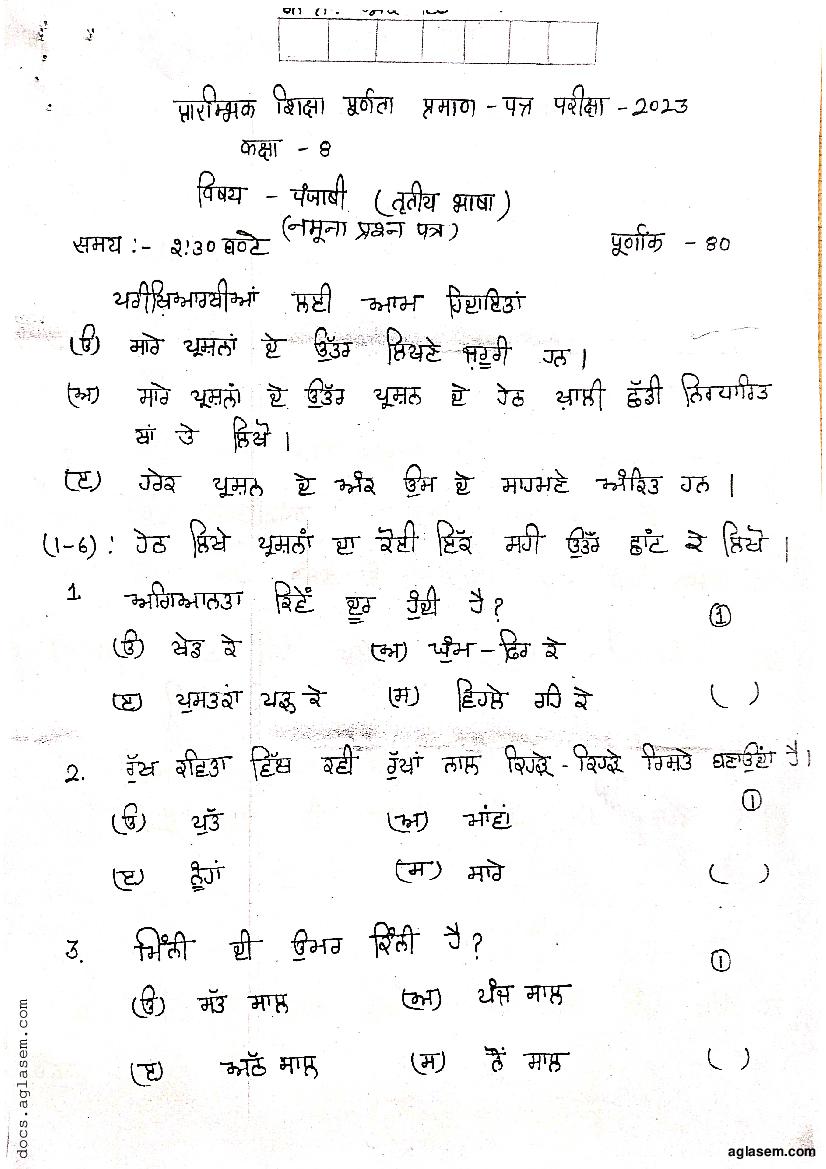 प्रारम्भिक शिक्षा पूर्णता प्रमाण - पत्र परीक्षा - 2023
कक्षा - 8
विषय - पंजाबी (तृतीय भाषा)
(नमूना प्रश्न पत्र)
समय :- 2:30 घण्टे पूर्णांक - 80
ਪਰੀਖਿਆਰਥੀਆਂ ਲਈ ਆਮ ਹਿਦਾਇਤਾਂ
(ੳ) ਸਾਰੇ ਪ੍ਰਸ਼ਨਾਂ ਦੇ ਉੱਤਰ ਲਿਖਣੇ ਜ਼ਰੂਰੀ ਹਨ।
(ਅ) ਸਾਰੇ ਪ੍ਰਸ਼ਨਾਂ ਦੇ ਉੱਤਰ ਪ੍ਰਸ਼ਨ ਦੇ ਹੇਠ ਖ਼ਾਲੀ ਛੱਡੀ ਨਿਰਧਾਰਿਤ
ਥਾਂ ਤੇ ਲਿਖੋ।
(ੲ) ਹਰੇਕ ਪ੍ਰਸ਼ਨ ਦੇ ਅੰਕ ਉਸ ਦੇ ਸਾਹਮਣੇ ਅੰਕਿਤ ਹਨ।
(1-6): ਹੇਠ ਲਿਖੇ ਪ੍ਰਸ਼ਨਾਂ ਦਾ ਕੋਈ ਇੱਕ ਸਹੀ ਉੱਤਰ ਛਾਂਟ ਕੇ ਲਿਖੋ।
1. ਅਗਿਆਨਤਾ ਕਿਵੇਂ ਦੂਰ ਹੁੰਦੀ ਹੈ? ①
(ੳ) ਖੇਡ ਕੇ (ਅ) ਘੁੰਮ - ਫਿਰ ਕੇ
(ੲ) ਪੁਸਤਕਾਂ ਪੜ੍ਹ ਕੇ (ਸ) ਵਿਹਲੇ ਰਹਿ ਕੇ ( )
2. ਰੁੱਖ ਕਵਿਤਾ ਵਿੱਚ ਕਵੀ ਰੁੱਖਾਂ ਨਾਲ ਕਿਹੜੇ - ਕਿਹੜੇ ਰਿਸ਼ਤੇ ਬਣਾਉਂਦਾ ਹੈ। ①
(ੳ) ਪੁੱਤ (ਅ) ਮਾਂਵਾਂ
(ੲ) ਨੂੰਹਾਂ (ਸ) ਸਾਰੇ ( )
3. ਮਿੰਨੀ ਦੀ ਉਮਰ ਕਿੰਨੀ ਹੈ? ①
(ੳ) ਸੱਤ ਸਾਲ (ਅ) ਪੰਜ ਸਾਲ
(ੲ) ਅੱਠ ਸਾਲ (ਸ) ਨੌਂ ਸਾਲ ( )
docs.aglasem.com
aglasem.com